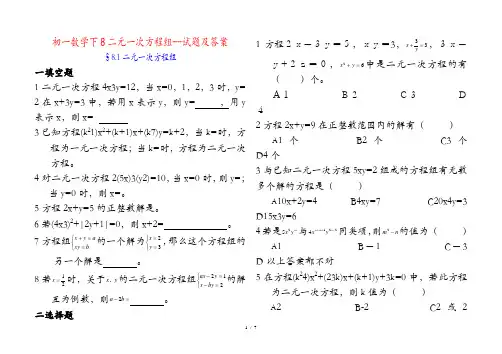 初一数学下８二元一次方程组—试题及答案
§8.1二元一次方程组
一填空题
1二元一次方程4x3y=12，当x=0，1，2，3时，y=
2在x+3y=3中，若用x表示y，则y= ，用y
表示x，则x=
3已知方程(k²1)x²+(k+1)x+(k7)y=k+2，当k=时，方
程为一元一次方程；当k=时，方程为二元一次
方程。
4对二元一次方程2(5x)3(y2)=10，当x=0时，则y=；
当y=0时，则x=。
5方程2x+y=5的正整数解是。
6若(4x3)²+|2y+1|=0，则x+2= 。
7方程组{x+y=a xy=b的一个解为{x=2 y=3，那么这个方程组的
另一个解是 。
8若x=1/2时，关于x、y的二元一次方程组{ax−2y=1 x−by=2的解
互为倒数，则a−2b= 。
二选择题
1方程２ｘ－３ｙ＝５，ｘｙ＝3，x+3/y=3，３ｘ－
ｙ＋２ｚ＝０，x²+y=6中是二元一次方程的有
（ ）个。
Ａ１ Ｂ２ Ｃ３ Ｄ
４
2方程2x+y=9在正整数范围内的解有（ ）
A1个 B2个 C3个
D4个
3与已知二元一次方程5xy=2组成的方程组有无数
多个解的方程是（ ）
A10x+2y=4 B4xy=7 C20x4y=3
D15x3y=6
4若是
同类项，则
的值为 （ ）
A1 B－1 C－3
D以上答案都不对
5在方程(k²4)x²+(23k)x+(k+1)y+3k=0中，若此方程
为二元一次方程，则k值为（ ）
A2 B-2 C2或2
1 / 7